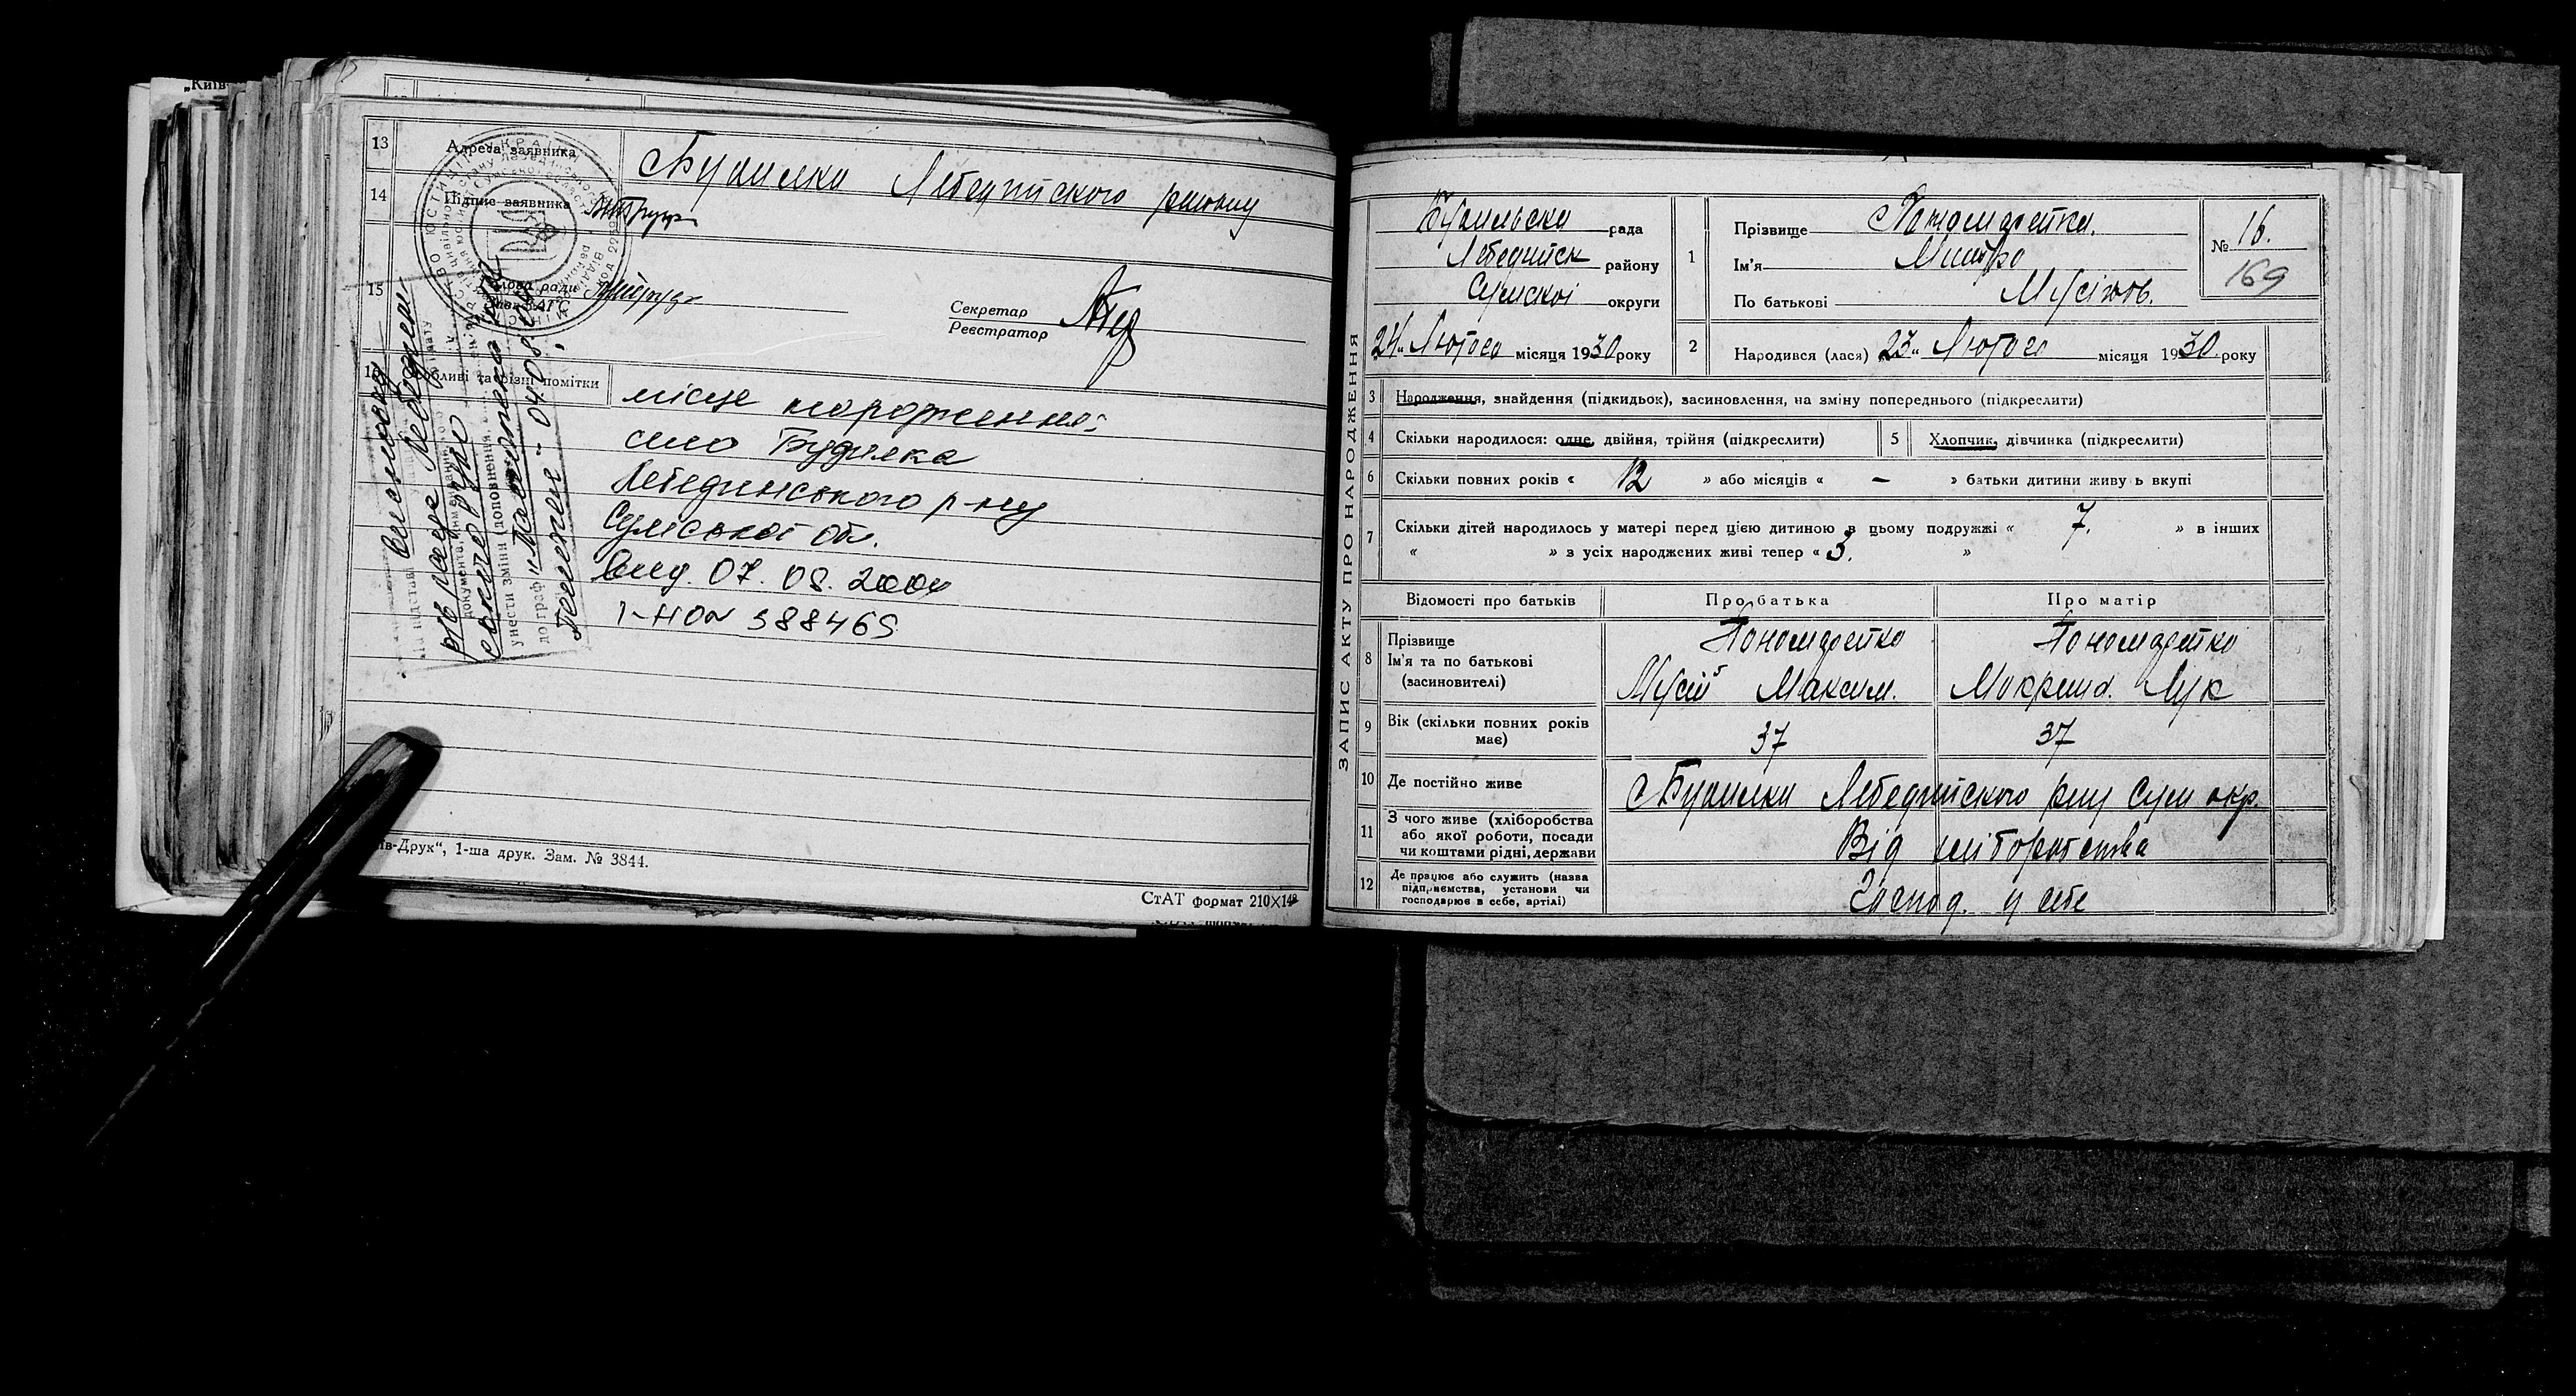 „Київ-
13 Адреса заявника с Будилки Лебединского району
14 Підпис заявника
15 Голова ради
Зав. ЗАГС
Секретар
Реєстратор
16 Особливі та різні помітки
місце народження:
село Будилка
Лебединського р-ну
Сумської об.
вид. 07.08.2004
388469
На підставі висновку
документа, ким
унести зміни (доповнення,
до граф
04.08.
ів-Друк“, 1-ша друк. Зам. № 3844.
СтАТ формат 210×148
ЗАПИС АКТУ ПРО НАРОДЖЕННЯ
Будильська рада
Лебединск району
Сумскої округи
24 „ Лютого місяця 1930 року
1 Прізвище Пономаренко.
Ім'я Митро
По батькові Мусіюв.
№ 16.
169
2 Народився (лася) 23 „ Лютого місяця 1930 року
3 Народження, знайдення (підкидьок), засиновлення, на зміну попереднього (підкреслити)
4 Скільки народилося: одне, двійня, трійня (підкреслити) 5 Хлопчик, дівчинка (підкреслити)
6 Скільки повних років « 12 » або місяців « – » батьки дитини живуть вкупі
7 Скільки дітей народилось у матері перед цією дитиною в цьому подружжі « 7. » в інших
« » з усіх народжених живі тепер « 3. »
Відомості про батьків Про батька Про матір
8 Прізвище Пономаренко Пономаренко
Ім'я та по батькові Мусій Максим. Мокрина Лук
(засиновителі)
9 Вік (скільки повних років має) 37 37
10 Де постійно живе с Будилки Лебединского рну Сум окр.
11 З чого живе (хліборобства
або якої роботи, посади
чи коштами рідні, держави Від хліборобства
12 Де працює або служить (назва
підприємства, установи чи
господарює в себе, артілі) Господ. у себе